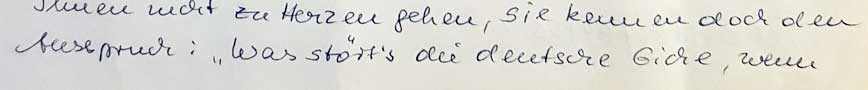 Ihnen nicht zu Herzen gehen, sie kennen doch den
Ausspruch: „Was stört's die deutsche Eiche, wenn